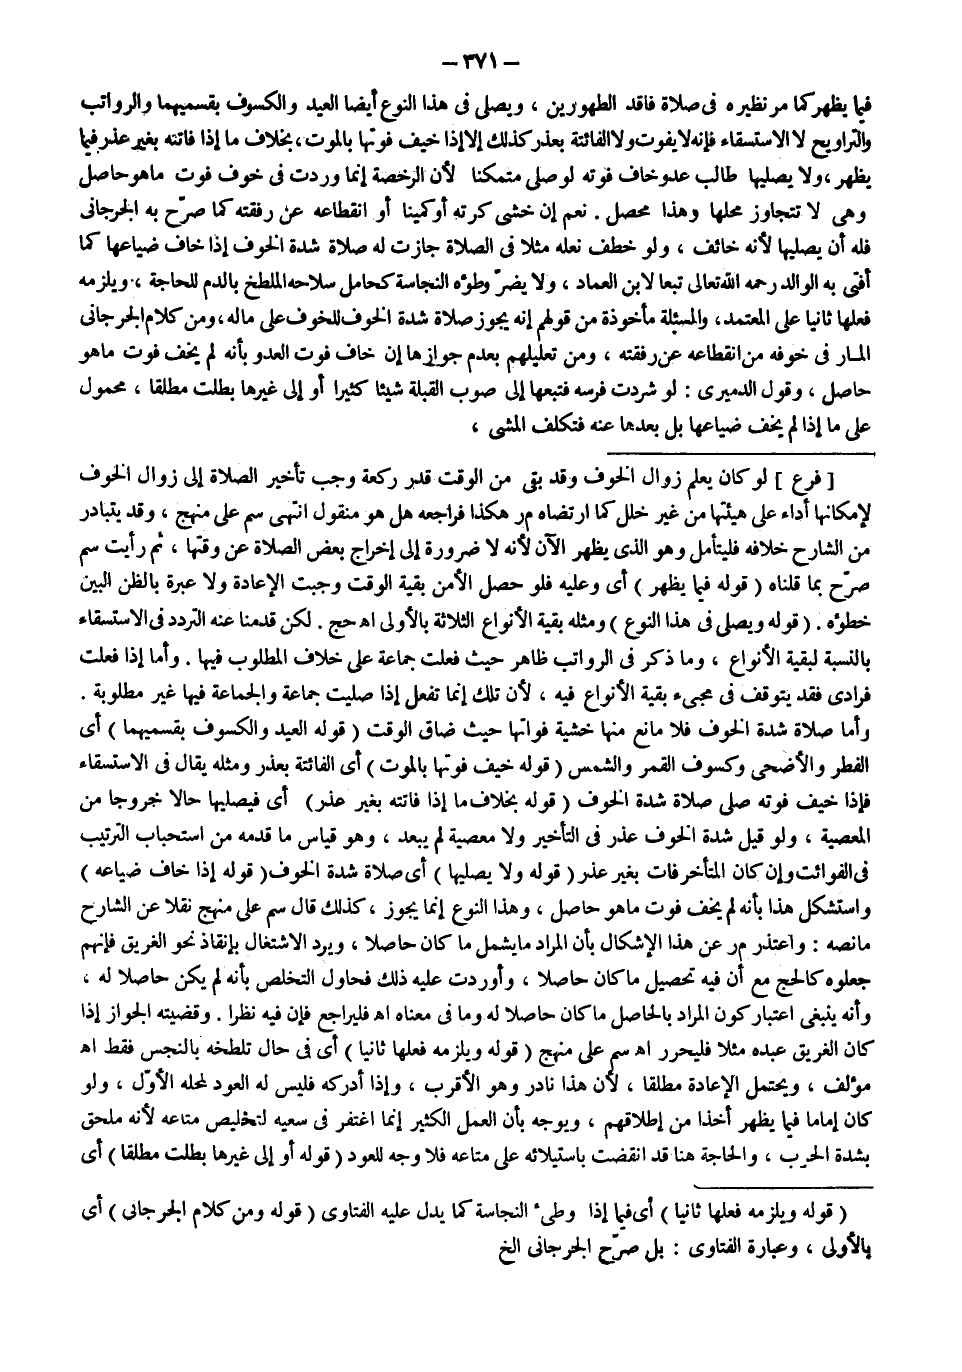 – ٣٧١ –
فيما يظهر كما مر نظيره فى صلاة فاقد الطهورين ، ويصلى فى هذا النوع أيضا العيد والكسوف بقسميهما والرواتب
والتراويح لا الاستسقاء فإنه لا يفوت ولا الفائتة بعذر كذلك إلا إذا خيف فوتها بالموت ، بخلاف ما إذا فاتته بغير عذر فيما
يظهر ، ولا يصليها طالب عدو خاف فوته لو صلى متمكنا لأن الرخصة إنما وردت فى خوف فوت ماهو حاصل
وهى لا تتجاوز محلها وهذا محصل . نعم إن خشى كرته أو كمينا أو انقطاعه عن رفقته كما صرّح به الجرجانى
فله أن يصليها لأنه خائف ، ولو خطف نعله مثلا فى الصلاة جازت له صلاة شدة الخوف إذا خاف ضياعها كما
أفتى به الوالد رحمه الله تعالى تبعا لابن العماد ، ولا يضرّ وطؤه النجاسة كحامل سلاحه الملطخ بالدم للحاجة ، ويلزمه
فعلها ثانيا على المعتمد ، والمسئلة مأخوذة من قولهم إنه يجوز صلاة شدة الخوف للخوف على ماله ، ومن كلام الجرجانى
المـار فى خوفه من انقطاعه عن رفقته ، ومن تعليلهم بعدم جوازها إن خاف فوت العدو بأنه لم يخف فوت ماهو
حاصل ، وقول الدميرى : لو شردت فرسه فتبعها إلى صوب القبلة شيئا كثيرا أو إلى غيرها بطلت مطلقا ، محمول
على ما إذا لم يخف ضياعها بل بعدها عنه فتكلف المشى ،
[ فرع ] لو كان يعلم زوال الخوف وقد بقى من الوقت قدر ركعة وجب تأخير الصلاة إلى زوال الخوف
لإمكانها أداء على هيئتها من غير خلل كما ارتضاه مر هكذا فراجعه هل هو منقول انتهى سم على منهج ، وقد يتبادر
من الشارح خلافه فليتأمل وهو الذى يظهر الآن لأنه لا ضرورة إلى إخراج بعض الصلاة عن وقتها ، ثم رأيت سم
صرّح بما قلناه ( قوله فيما يظهر ) أى وعليه فلو حصل الأمن بقية الوقت وجبت الإعادة ولا عبرة بالظن البين
خطؤه . ( قوله ويصلى فى هذا النوع ) ومثله بقية الأنواع الثلاثة بالأولى اه حج . لكن قدمنا عنه التردد فى الاستسقاء
بالنسبة لبقية الأنواع ، وما ذكر فى الرواتب ظاهر حيث فعلت جماعة على خلاف المطلوب فيها . وأما إذا فعلت
فرادى فقد يتوقف فى مجىء بقية الأنواع فيه ، لأن تلك إنما تفعل إذا صليت جماعة والجماعة فيها غير مطلوبة .
وأما صلاة شدة الخوف فلا مانع منها خشية فواتها حيث ضاق الوقت ( قوله العيد والكسوف بقسميهما ) أى
الفطر والأضحى وكسوف القمر والشمس ( قوله خيف فوتها بالموت ) أى الفائتة بعذر ومثله يقال فى الاستسقاء
فإذا خيف فوته صلى صلاة شدة الخوف ( قوله بخلاف ما إذا فاتته بغير عذر ) أى فيصليها حالا خروجا من
المعصية ، ولو قيل شدة الخوف عذر فى التأخير ولا معصية لم يبعد ، وهو قياس ما قدمه من استحباب الترتيب
فى الفوائت وإن كان المتأخرفات بغير عذر ( قوله ولا يصليها ) أى صلاة شدة الخوف ( قوله إذا خاف ضياعه )
واستشكل هذا بأنه لم يخف فوت ماهو حاصل ، وهذا النوع إنما يجوز ، كذلك قال سم على منهج نقلا عن الشارح
مانصه : واعتذر مر عن هذا الإشكال بأن المراد مايشمل ما كان حاصلا ، ويرد الاشتغال بإنقاذ نحو الغريق فإنهم
جعلوه كالحج مع أن فيه تحصيل ماكان حاصلا ، وأوردت عليه ذلك فحاول التخلص بأنه لم يكن حاصلا له ،
وأنه ينبغى اعتبار كون المراد بالحاصل ماكان حاصلا له وما فى معناه اه فليراجع فإن فيه نظرا . وقضيته الجواز إذا
كان الغريق عبده مثلا فليحرر اه سم على منهج ( قوله ويلزمه فعلها ثانيا ) أى فى حال تلطخه بالنجس فقط اه
مؤلف ، ويحتمل الإعادة مطلقا ، لأن هذا نادر وهو الأقرب ، وإذا أدركه فليس له العود لمحله الأوّل ، ولو
كان إماما فيما يظهر أخذا من إطلاقهم ، ويوجه بأن العمل الكثير إنما اغتفر فى سعيه لتخليص متاعه لأنه ملحق
بشدة الحرب ، والحاجة هنا قد انقضت باستيلائه على متاعه فلا وجه للعود ( قوله أو إلى غيرها بطلت مطلقا ) أى
( قوله ويلزمه فعلها ثانيا ) أى فيما إذا وطىء النجاسة كما يدل عليه الفتاوى ( قوله ومن كلام الجرجانى ) أى
بالأولى ، وعبارة الفتاوى : بل صرّح الجرجانى الخ